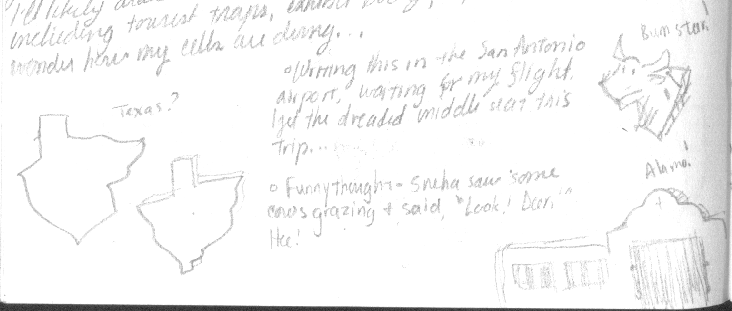 I'll likely
including tourist traps, exhibit
wonder how my cells are doing...
Bum steer!
° Writing this in the San Antonio
airport, waiting for my flight.
I get the dreaded middle seat this
trip...
Texas?
Alamo!
° Funny thought - Sneha saw some
cows grazing + said, "Look! Deer!"
Hee!